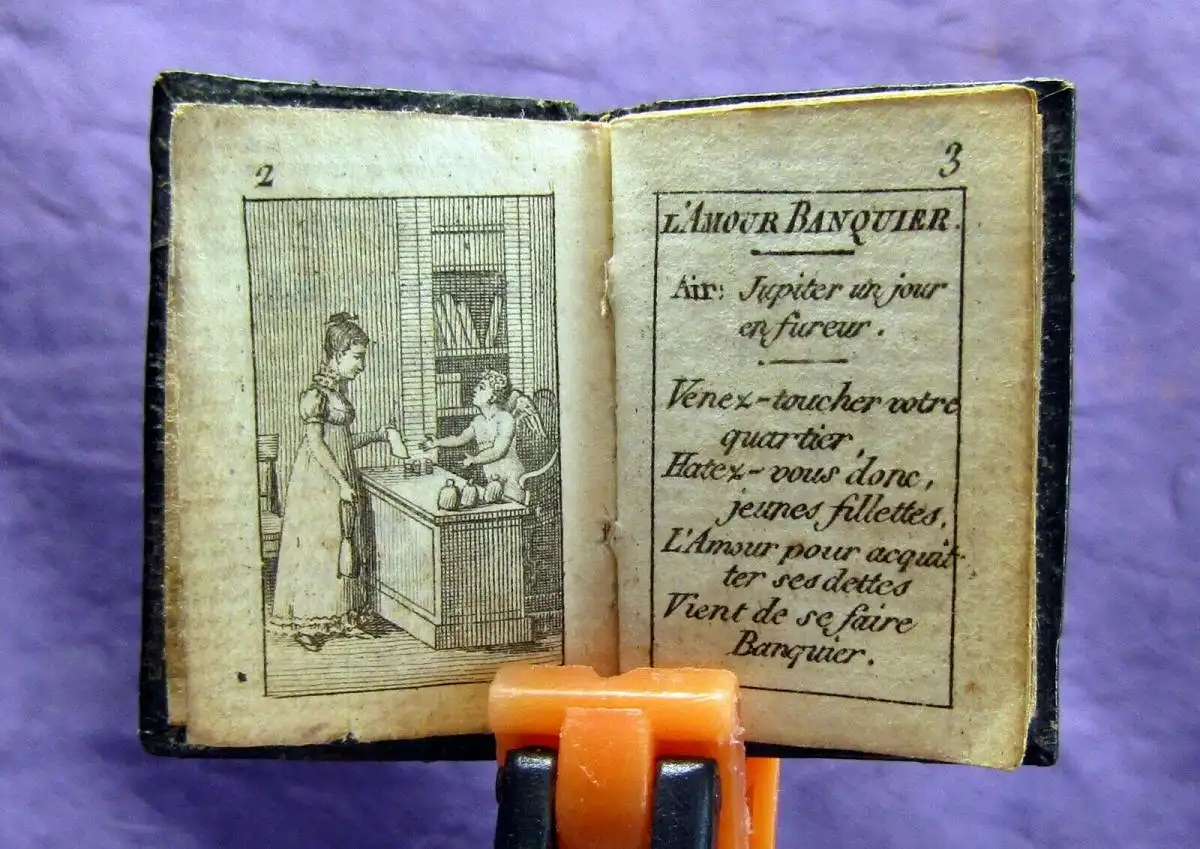 2
3
L'AMOUR BANQUIER.
Air: Jupiter un jour
en fureur.
Venez-toucher votre
quartier,
Hatez-vous donc,
jeunes fillettes,
L'Amour pour acquit-
ter ses dettes
Vient de se faire
Banquier.